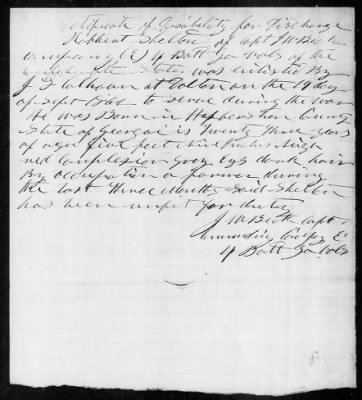 Certificate of Disability for Discharge
Robbert Shelton of Capt J W Beck
Company (E) 4 Batt Ga Vols of the
Confederate States was enlisted By
J F Cathean at Dolton on the 19 day
of Sept 1861 to serve during the war
he was Born in Habersham County
State of Georgai is Twenty Three years
of age five feet nine inches high
red Complexion Grey Eys dark hair
By occupation a farmer during
the last three Months Said Shelton
has been unfit for duty
J W Beck Capt
Comanding Compy E
4 Batt Ga Vols